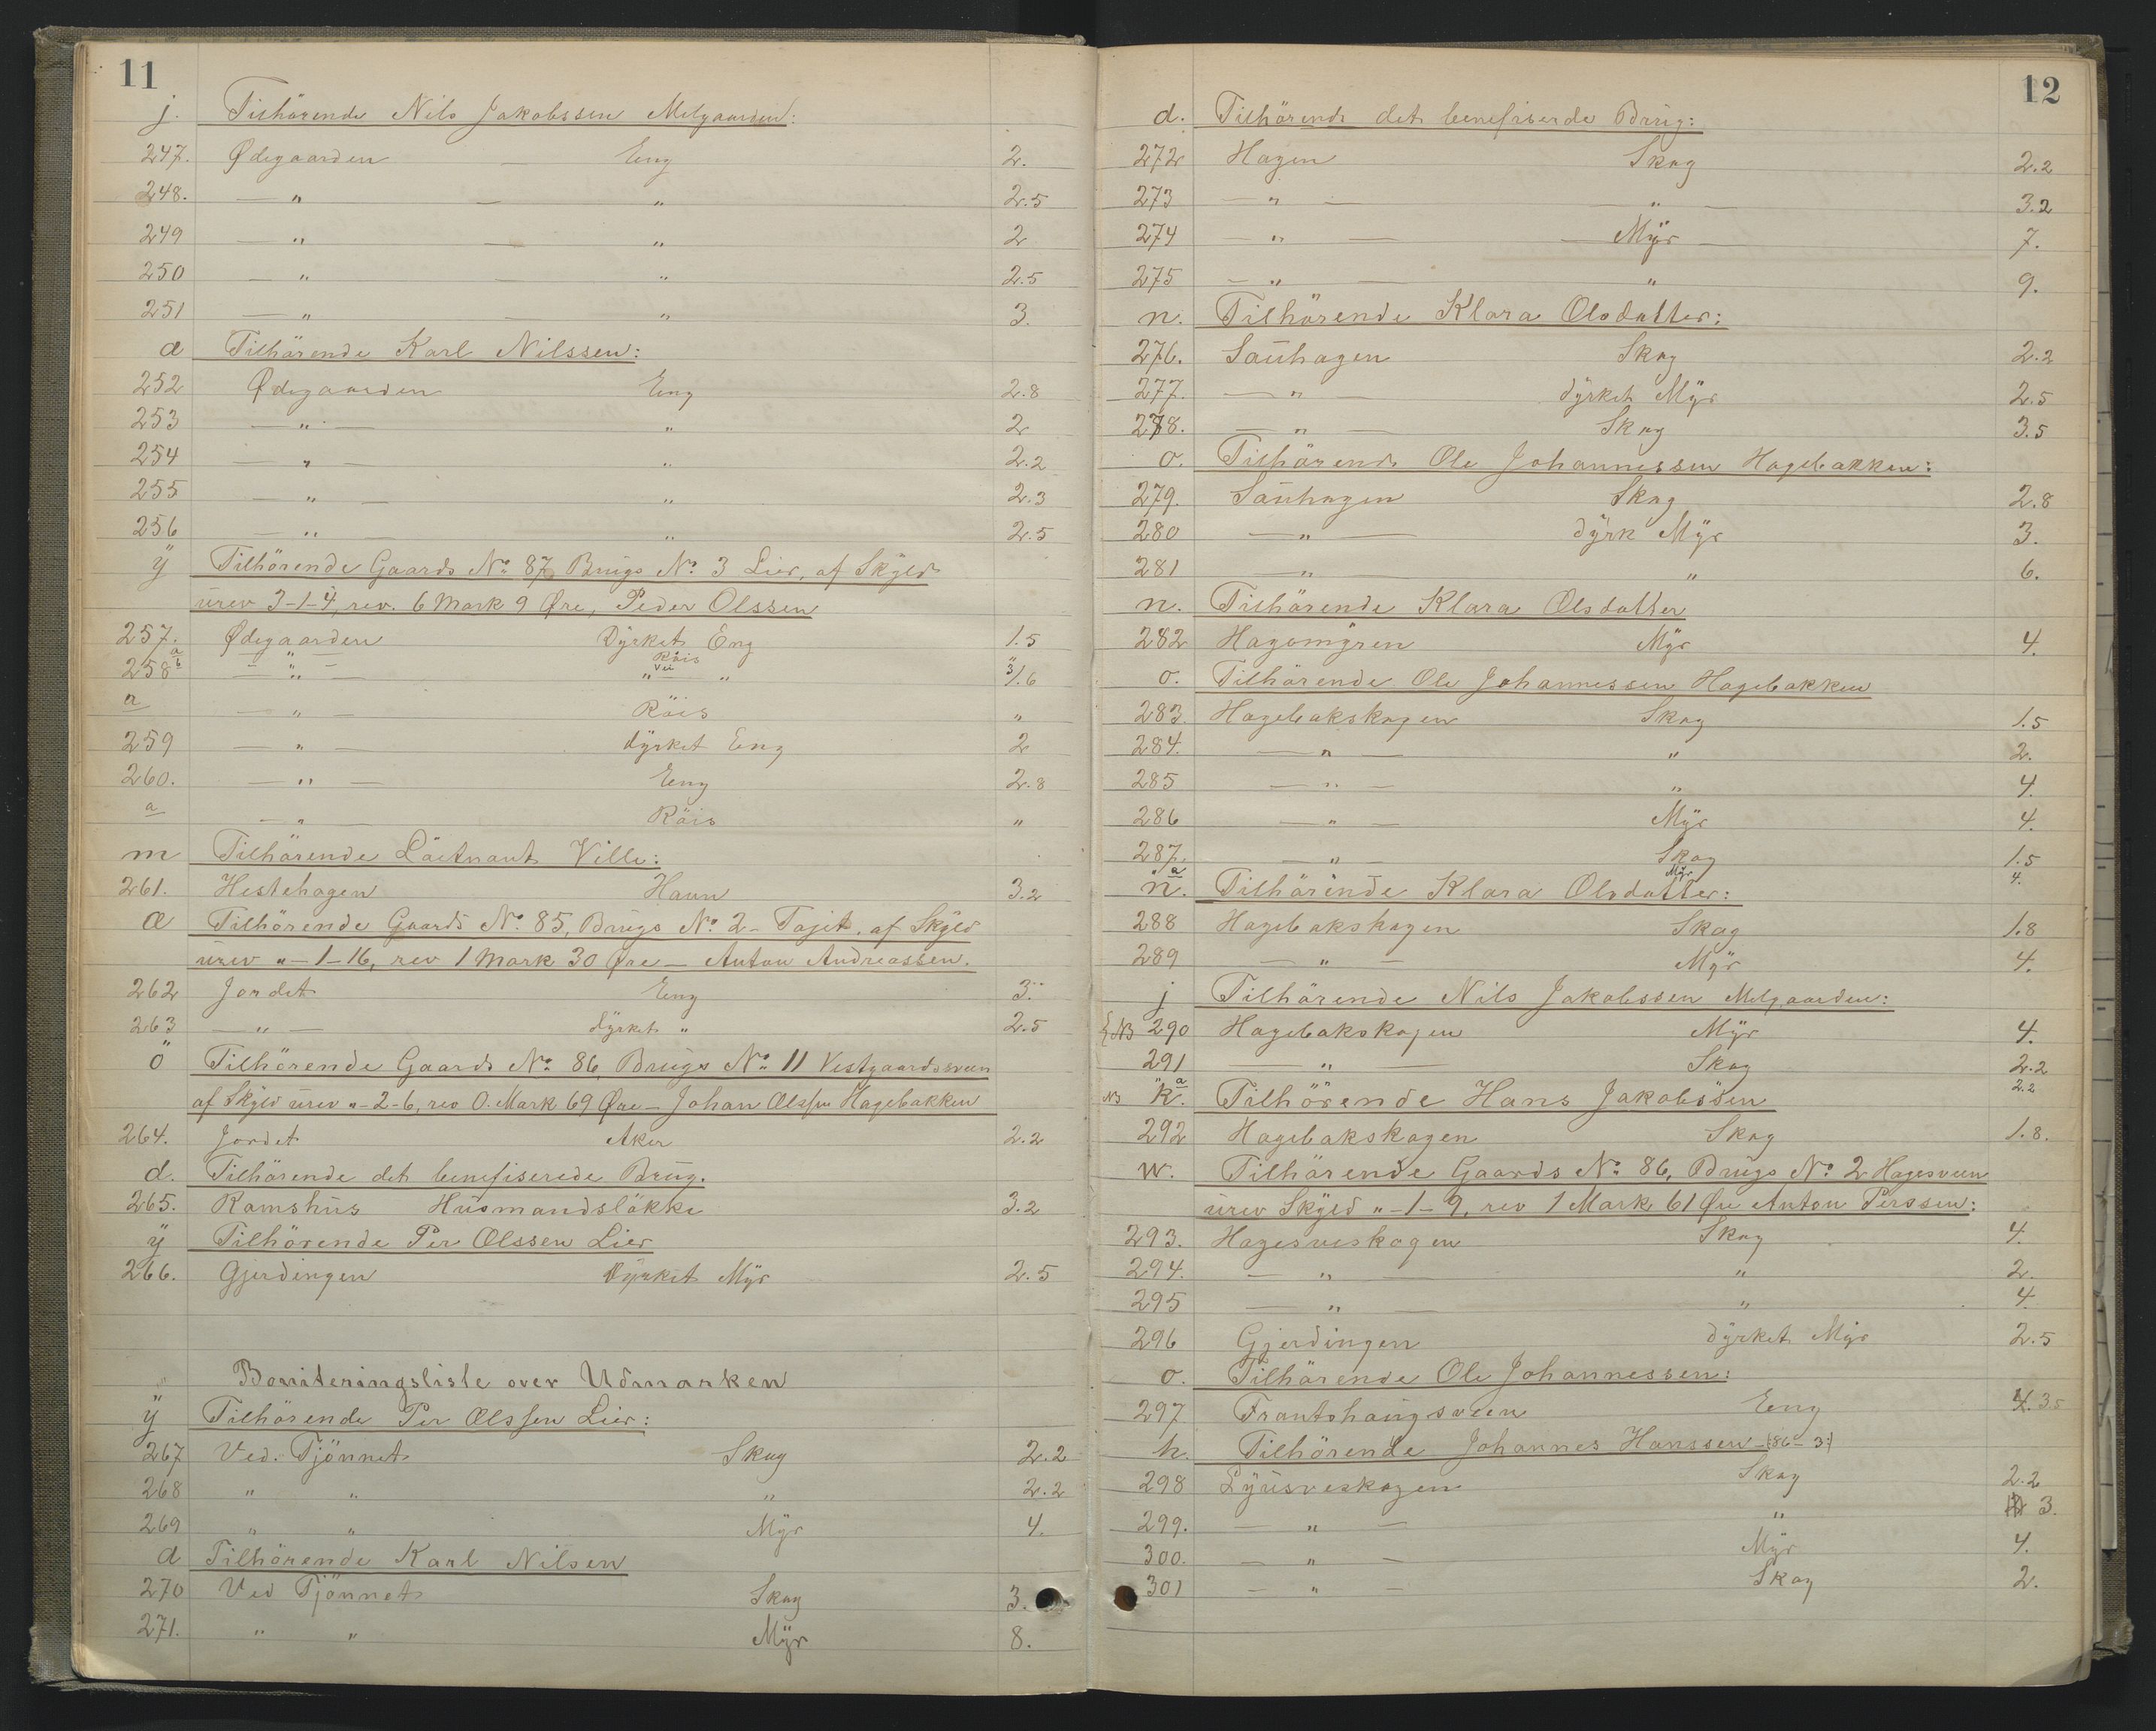 11
j. Tilhörende Nils Jakobssen Melgaarden:
247. Ødegaarden — Eng 2.
248. — " — " 2.5
249 — " — " 2
250 — " — " 2.5
251 — " — " 3.
a Tilhörende Karl Nilssen:
252 Ødegaarden Eng 2.8
253 — " — " 2
254 — " — " 2.2
255 — " — " 2.3
256 — " — " 2.5
ÿ Tilhörende Gaards No. 87, Brŭgs No. 3 Lier, af Skÿld
ŭrev 3-1-4, rev. 6 Mark 9 Øre, Peder Olssen
257. Ødegaarden Dÿrket Eng 1.5
a — " — Röis "
258 b — " — " Vei " 3 1.6
a — " — Röis "
259 — " — dÿrket Eng 2
260. — " — Eng 2.8
a — " — Röis "
m Tilhörende Löitnant Ville:
261. Hestehagen Havn 3.2
æ Tilhörende Gaards No. 85, Brŭgs No. 2 - Tajet, af Skÿld
ŭrev " - 1 - 16, rev 1 Mark 30 Øre - Anton Andreassen.
262 Jordet Eng 3.
263 — " — dÿrket " 2.5
ö Tilhörende Gaards No. 86, Brŭgs No. 11 Vestgaardssveen
af Skÿld ŭrev " - 2 - 6, rev 0. Mark 69 Øre - Johan Olssen Hagebakken
264. Jordet Aker 2.2
d. Tilhörende det benefiserede Brŭg.
265. Ramshŭs Hŭsmandslökke 3.2
ÿ Tilhörende Per Olssen Lier
266. Gjerdingen Dÿrket Mÿr 2.5
Boniteringsliste over Udmarken
ÿ Tilhörende Per Olssen Lier:
267 Ved. Tjönnet Skog 2.2
268 " " " 2.2
269 " " Mÿr 4.
a Tilhörende Karl Nilsen
270 Ved Tjönnet Skog 3.
271. " " Mÿr 8.
12
d. Tilhörende det benefiserde Brŭg:
272 Hagen Skog 2.2
273 — " — — " — 3.2
274 — " — — Mÿr — 7.
275 — " — " 9.
n. Tilhörende Klara Olsdatter:
276. Saŭhagen Skog 2.2
277. — " — dÿrket Mÿr 2.5
278. — " — Skog 3.5
o. Tilhörende Ole Johannessen Hagebakken:
279. Saŭhagen Skog 2.8
280 — " — dÿrk Mÿr 3.
281 — " — " 6.
n. Tilhörende Klara Olsdatter
282 Hagemÿren Mÿr 4.
o. Tilhörende Ole Johannessen Hagebakken
283. Hagebakskogen Skog 1.5
284. — " — " 2.
285 — " — " 4.
286 — " — Mÿr 4.
287. — " — Skog 1.5
" a Mÿr 4.
n. Tilhörende Klara Olsdatter:
288 Hagebakskogen Skog 1.8
289 — " — Mÿr 4.
j Tilhörende Nils Jakobssen Melgaarden:
NB 290 Hagebakskogen Mÿr 4.
291 — " — Skog 2.2
NB " a " " 2.2
k. Tilhörende Hans Jakobssen
292 Hagebakskogen Skog 1.8.
w. Tilhörende Gaards No. 86, Brŭgs No. 2 Hagesveen
ŭrev Skÿld " - 1 - 9, rev 1 Mark 61 Øre Anton Perssen:
293. Hagesveskogen Skog 4.
294. — " — " 2.
295 — " — " 4.
296 Gjerdingen dÿrket Mÿr 2.5
o. Tilhörende Ole Johannessen:
297 Frantshaŭgsveen Eng 4. 3.5
h. Tilhörende Johannes Hanssen - (86 - 3:)
298 Lÿŭsveskogen Skog 2.2
299. — " — " 3.
300. — " — Mÿr 4.
301 — " — Skog 2.